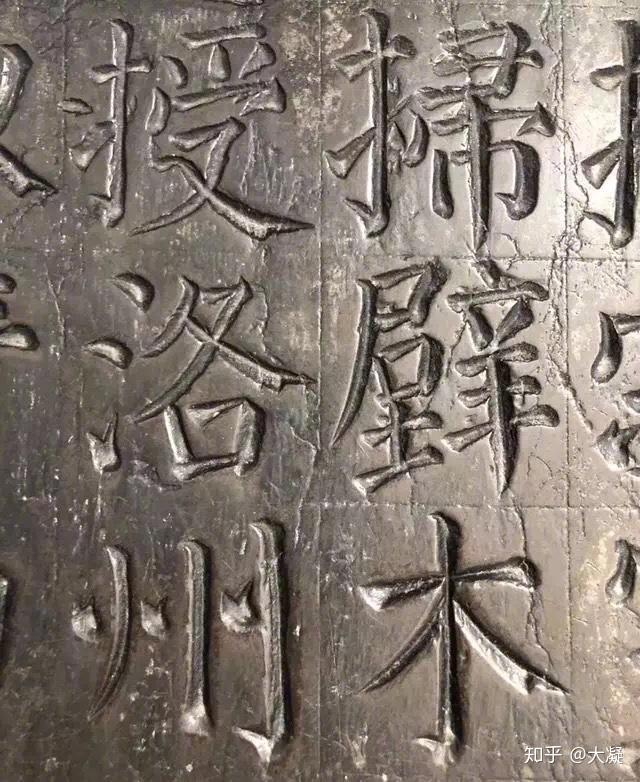 掃壁木
授洛州
知乎 @大凝